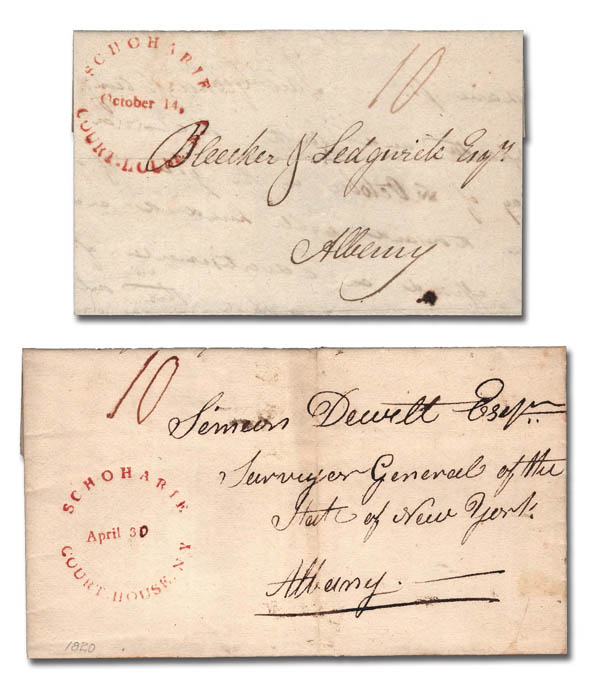 SCHOHARIE
October 14,
COURT-HOUSE
10
Bleecker & Sedgwick Esqrs
Albany
10
Simeon Dewitt Esqr
Surveyor General of the
State of New York
Albany.
SCHOHARIE
April 30
COURT HOUSE NY
1820